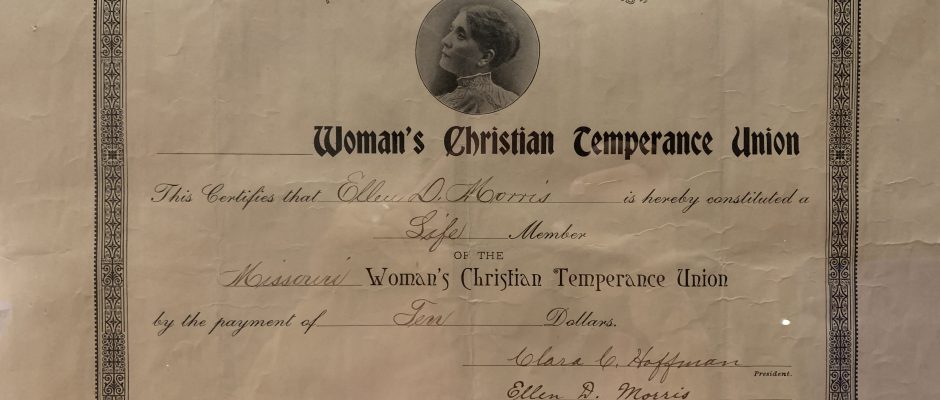 Woman's Christian Temperance Union
This Certifies that Ellen D. Morris is hereby constituted a
Life Member
OF THE
Missouri Woman's Christian Temperance Union
by the payment of Ten Dollars.
Clara C. Hoffman
President.
Ellen D. Morris